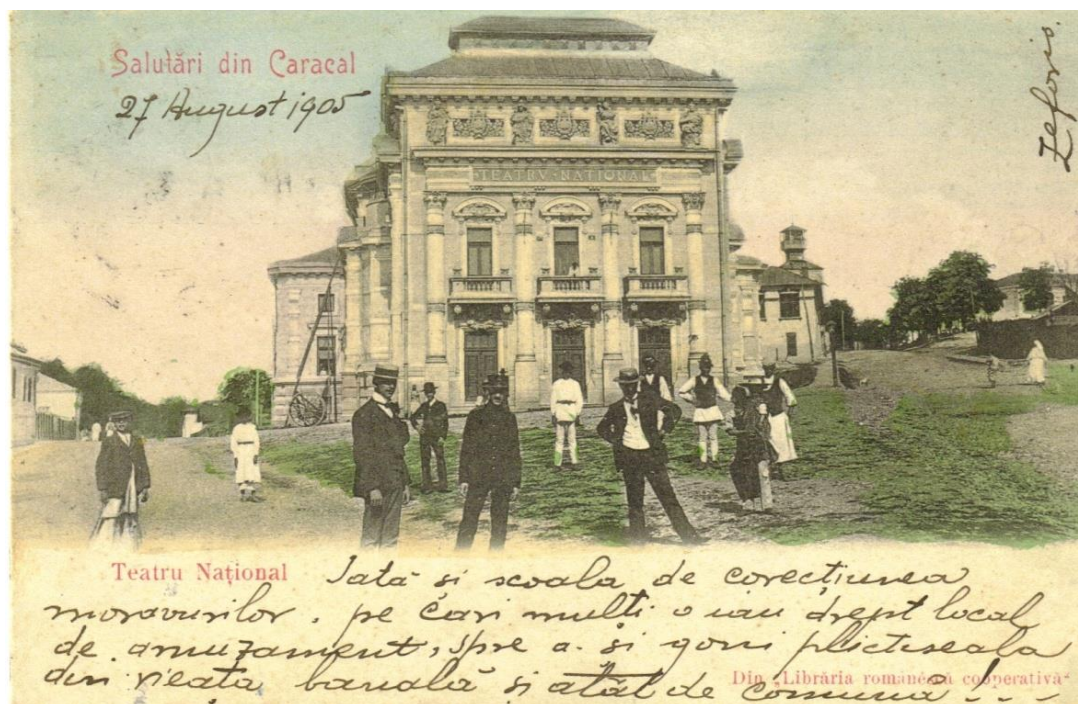 Salutări din Caracal
27 August 1905
Zefovis.
TEATRV·NATIONAL
Teatru Național
Iată si scoala de corecțiunea
moravurilor, pe cari mulți o iau drept local
de amuzament, spre a-si goni plictiseala
din vieata banală si atât de comună!..
Din „Librăria românéscă cooperativă“